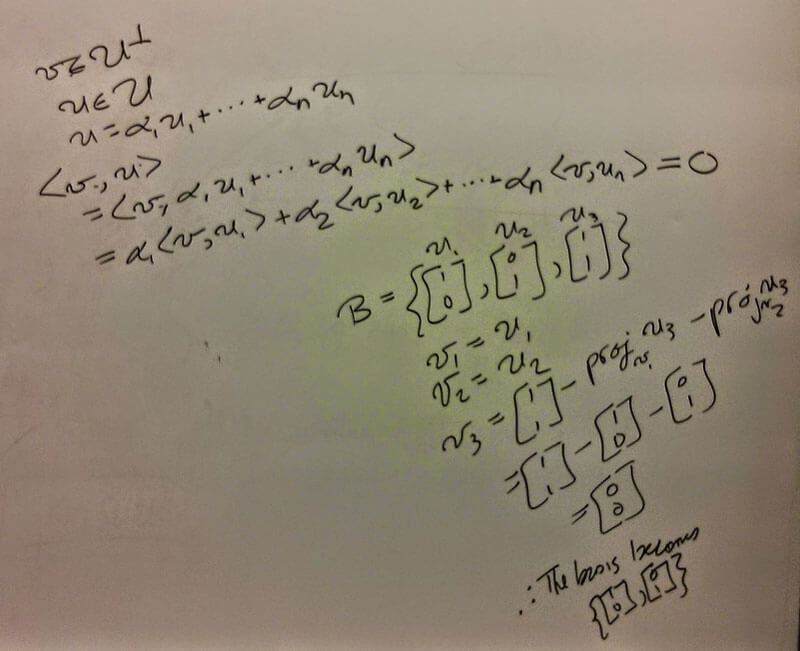 v ∈ U⊥
u ∈ U
u = α₁u₁ + ⋯ + αₙuₙ
⟨v, u⟩
= ⟨v, α₁u₁ + ⋯ + αₙuₙ⟩
= α₁⟨v, u₁⟩ + α₂⟨v, u₂⟩ + ⋯ + αₙ⟨v, uₙ⟩ = 0
u₁ u₂ u₃
B = {[1 0], [0 1], [1 1]}
v₁ = u₁
v₂ = u₂
v₃ = [1 1] - proj_v₁ u₃ - proj_v₂ u₃
= [1 1] - [1 0] - [0 1]
= [0 0]
∴ The basis becomes
{[1 0], [0 1]}